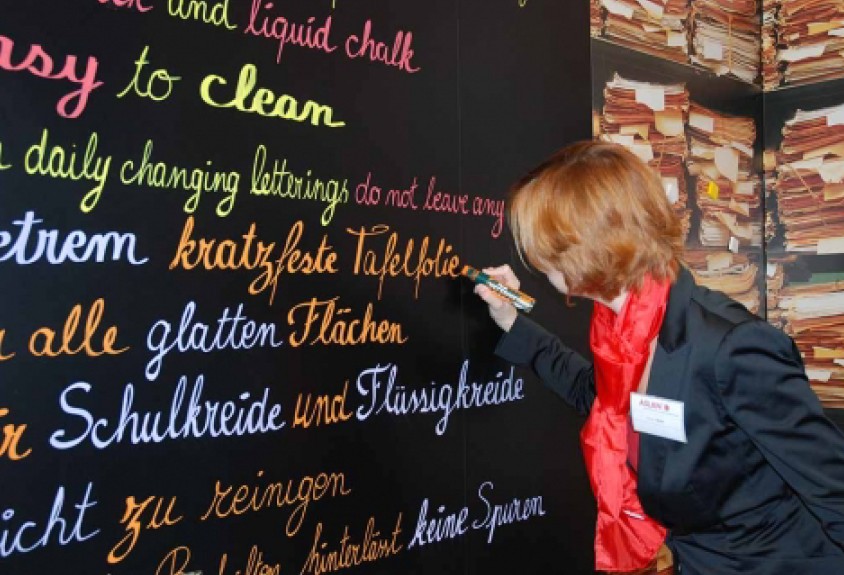 and liquid chalk
easy to clean
daily changing letterings do not leave any
etrem kratzfeste Tafelfolie
alle glatten Flächen
Schulkreide und Flüssigkreide
icht zu reinigen
hinterlässt keine Spuren
ASLAN